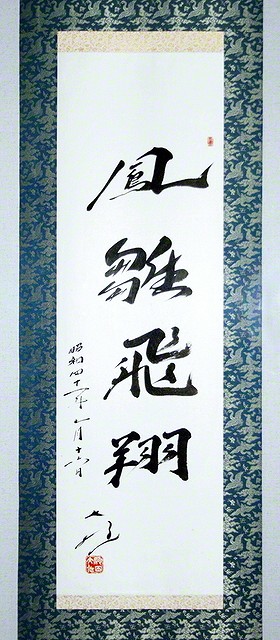 鳳雛飛翔
昭和四十二年一月十六日